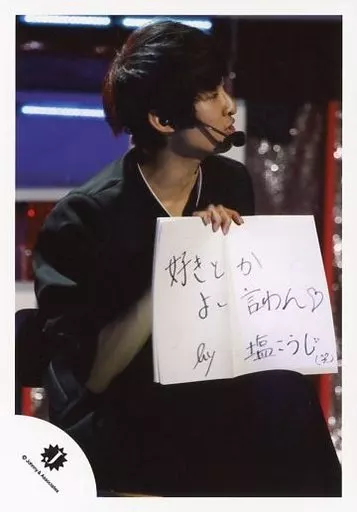 好きとか
よー言わん♡
by 塩こうじ(笑)
J
© Johnny & Associates